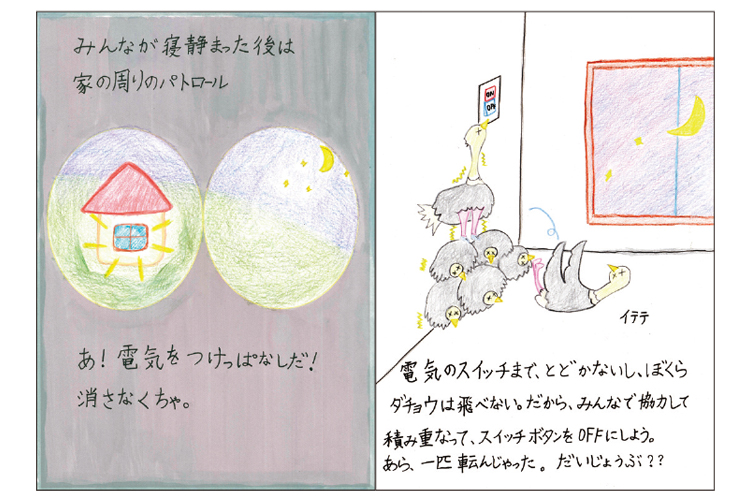 みんなが寝静まった後は
家の周りのパトロール
あ！電気をつけっぱなしだ！
消さなくちゃ。
ON
OFF
イテテ
電気のスイッチまで、とどかないし、ぼくら
ダチョウは飛べない。だから、みんなで協力して
積み重なって、スイッチボタンをOFFにしよう。
あら、一匹転んじゃった。だいじょうぶ？？